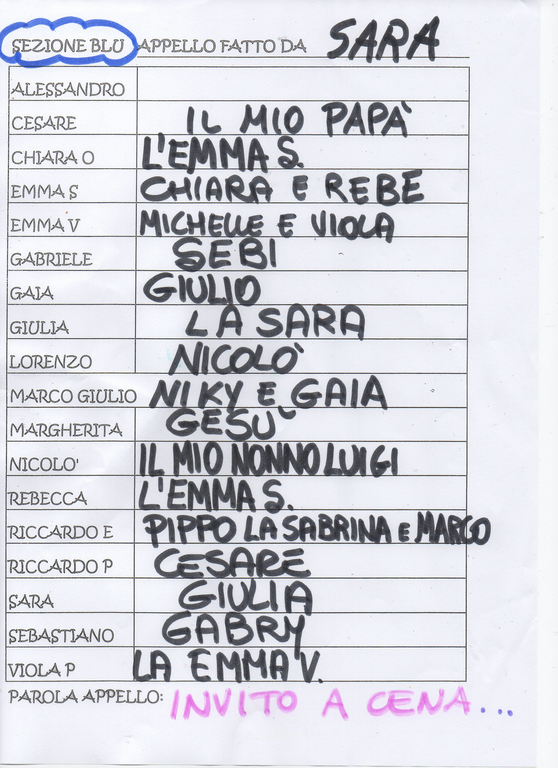 SEZIONE BLU APPELLO FATTO DA SARA
ALESSANDRO
CESARE IL MIO PAPÀ
CHIARA O L'EMMA S.
EMMA S CHIARA E REBE
EMMA V MICHELLE E VIOLA
GABRIELE SEBI
GAIA GIULIO
GIULIA LA SARA
LORENZO NICOLO'
MARCO GIULIO NIKY E GAIA
MARGHERITA GESU'
NICOLO' IL MIO NONNO LUIGI
REBECCA L'EMMA S.
RICCARDO E PIPPO LA SABRINA E MARCO
RICCARDO P CESARE
SARA GIULIA
SEBASTIANO GABRY
VIOLA P LA EMMA V.
PAROLA APPELLO: INVITO A CENA...